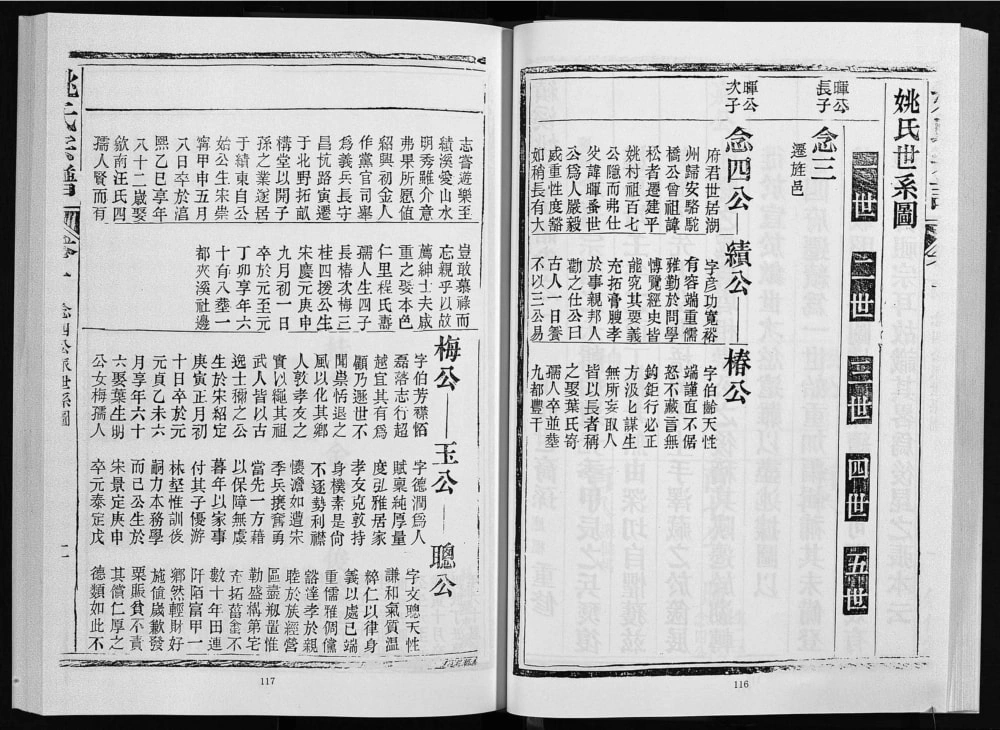 姚氏世系圖
一世
二世
三世
四世
五世
暉公
長子
念三
遷旌邑
暉公
次子
念四公
府君世居湖
州歸安駱駝
橋公曾祖諱
松者遷建平
姚村祖百七
公隐而弗仕
父諱暉蚤世
公爲人嚴毅
威重性度豁
如稍長有大
績公
字彦功寬裕
有容端重儒
雅勤於問學
博覽經史皆
能究其要義
充拓膏腴孝
於事親邦人
勸之仕公曰
古人一日養
不以三公易
椿公
字伯齡天性
端謹直不倨
怒不藏言無
鉤鉅行必正
方汲匕謀生
無所妄取人
皆以長者稱
之娶葉氏竒
孺人卒並塟
九都豐干
116
志嘗遊樂至
績溪愛山水
明秀雖介意
弗果所愿值
紹興初金人
作黨官司舉
爲義兵長守
昌 路寅遷
于北野拓畝
構堂以開子
孫之業遂居
于績東自公
始公生宋崇
甯甲申五月
八日卒於湻
熙乙巳享年
八十二歲娶
歙南汪氏四
孺人賢而有
豈敢慕祿而
忘親乎以故
薦紳士夫咸
重之娶本色
仁里程氏壽
孺人生四子
長椿次梅三
桂四援公生
宋慶元庚申
九月初一日
卒於元至元
丁卯享年六
十有八塟一
都夾溪社邊
梅公
字伯芳襟恬
磊落志行超
越宜其有爲
顧乃遯世不
聞崇恬退之
風以化其鄉
人敦孝友之
實以繩其祖
武人皆以古
逸士稱之公
生於宋紹定
庚寅正月初
十日卒於元
元貞乙未六
月享年六十
六娶葉生明
公女梅孺人
玉公
字德潤爲人
賦稟純厚量
度弘雅居家
孝友克敦持
身樸素是向
不逐勢利襟
懷澹如遭宋
季兵擾奮勇
當先一方藉
以保障無虞
暮年以家事
付其子優游
林壑惟訓後
嗣力本務學
而已公生於
宋景定庚申
卒元泰定戊
聰公
字文聰天性
謙和氣質温
粹仁以律身
義以處己端
重儒雅倜儻
豁達孝於親
睦於族經營
區畫剏置惟
勒盛稱第宅
充拓菑畬不
數十年田連
阡陌富甲一
鄉然輕財好
施值歲歉發
粟賑貧不責
其償仁厚之
德類如此不
念四公派世系圖
117